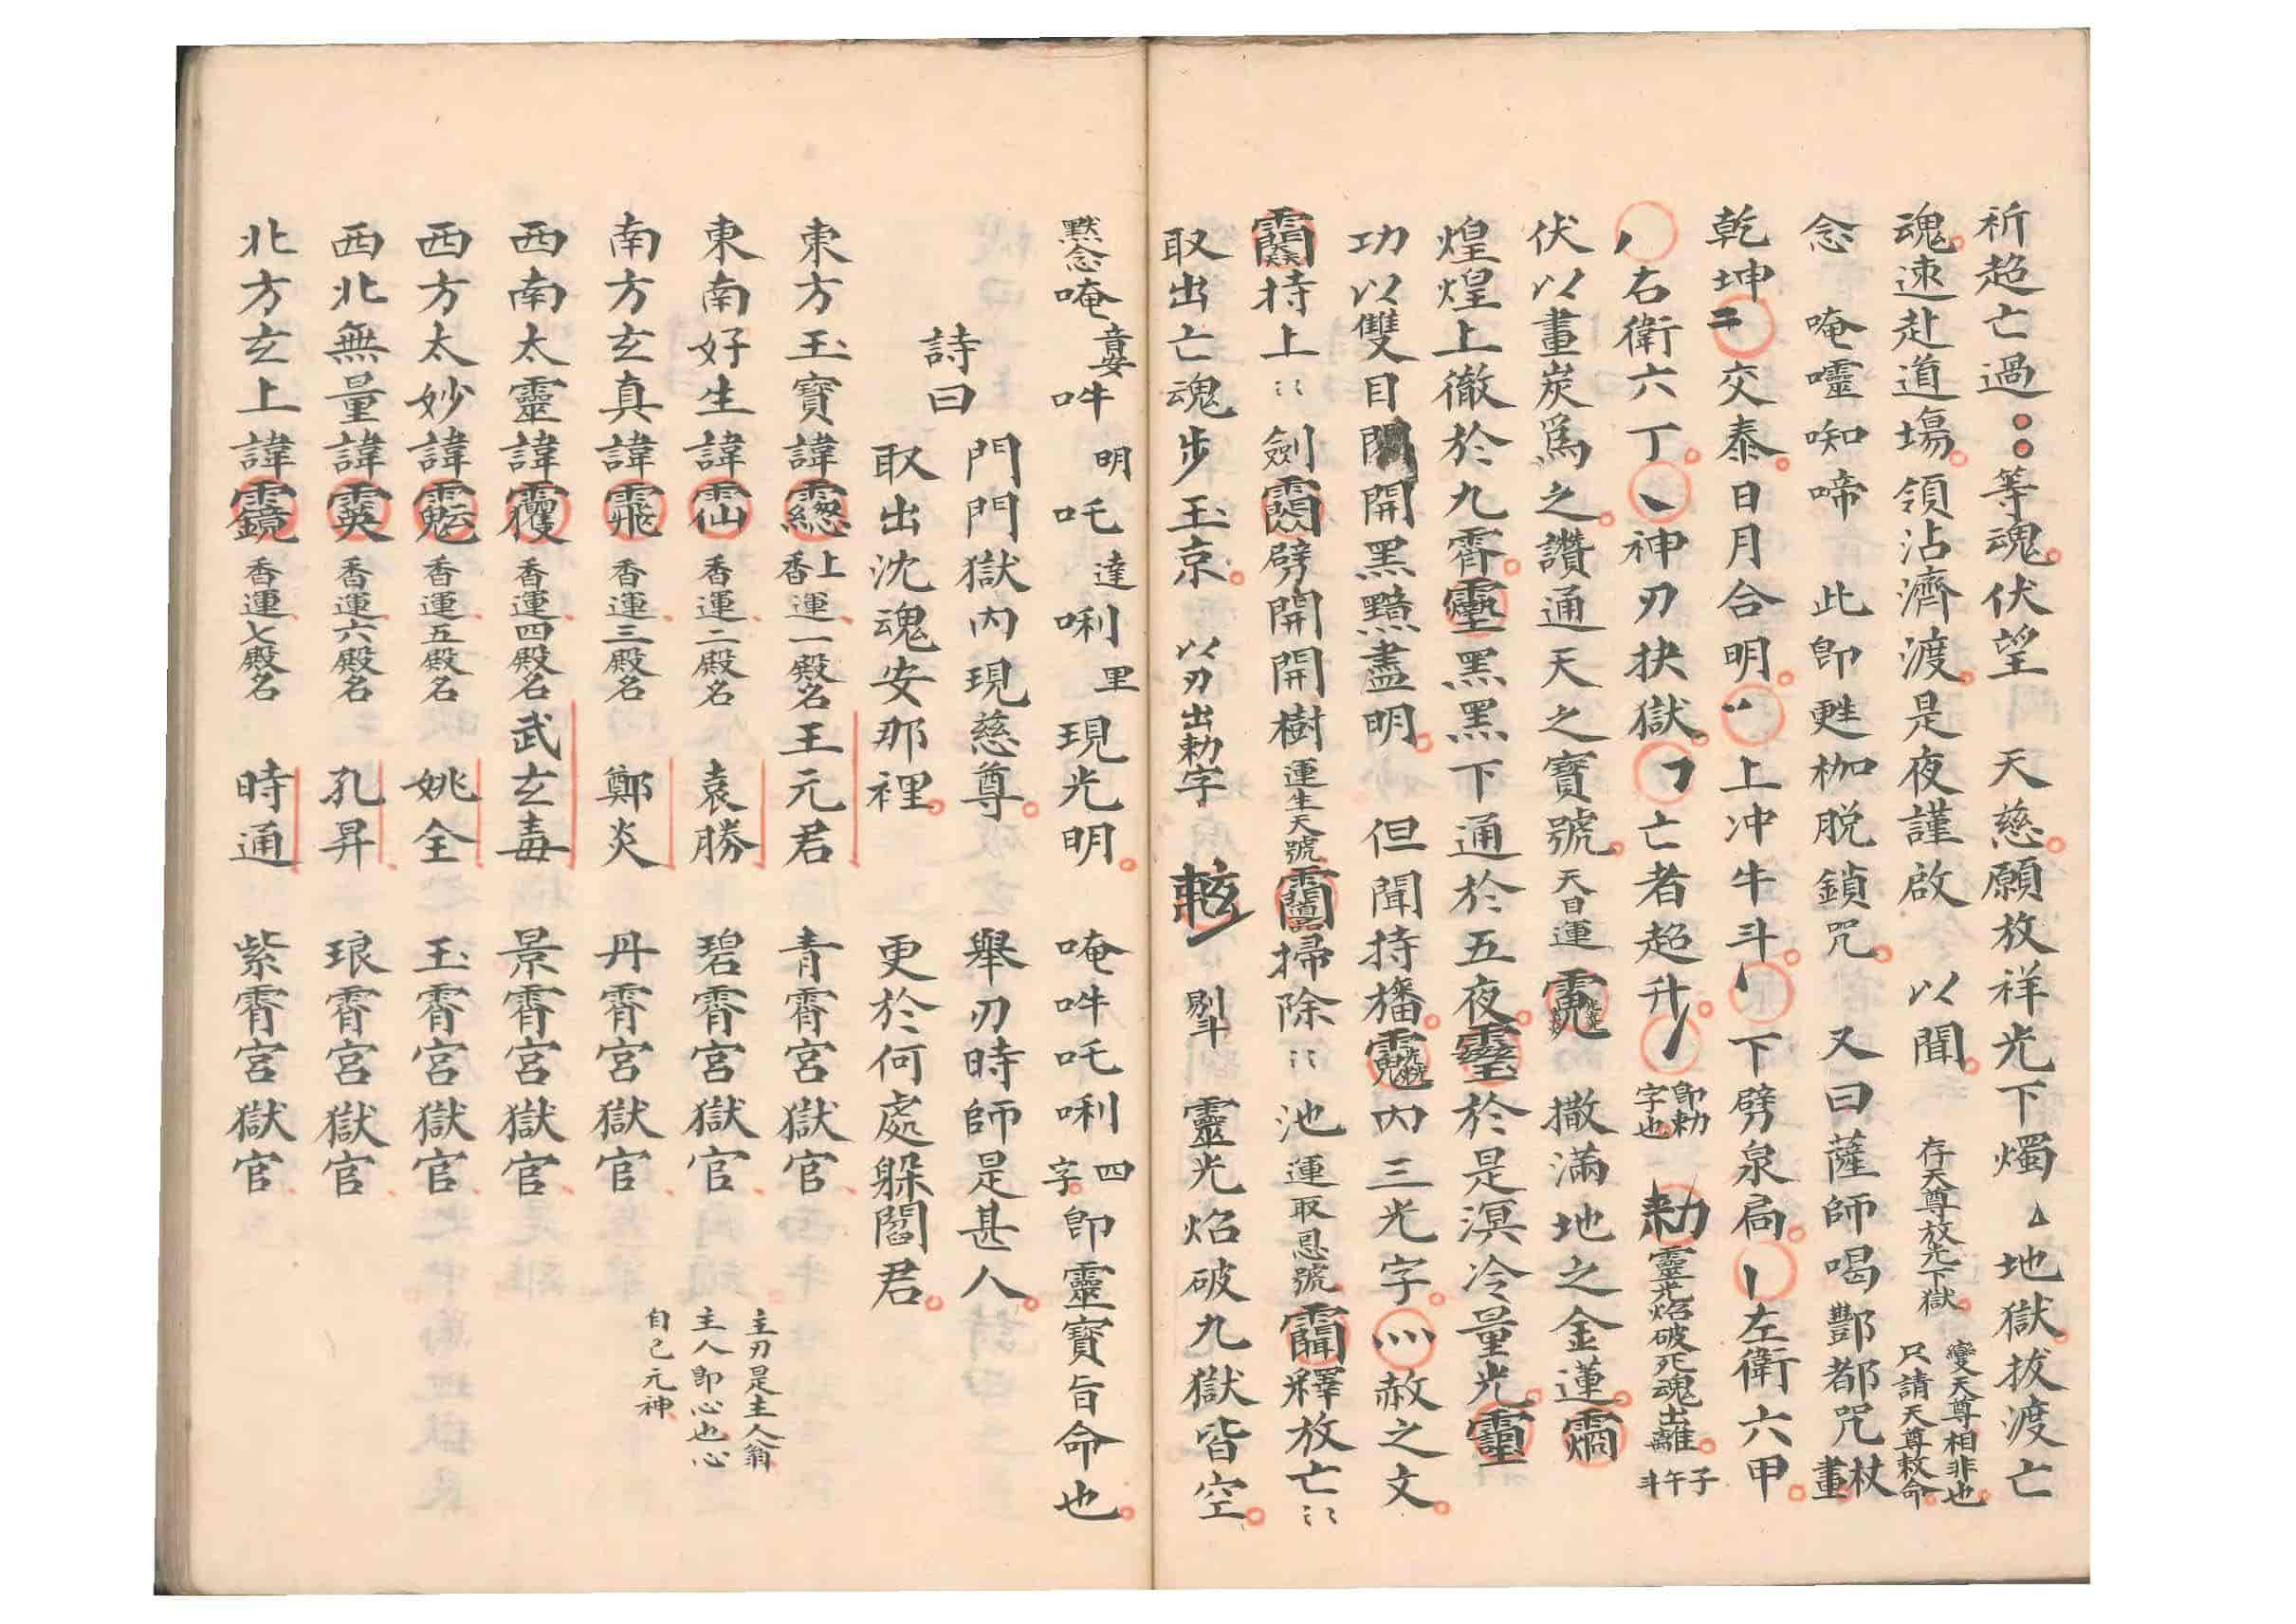 祈超亡過等魂伏望 天慈願放祥光下燭 地獄拔渡亡
魂速赴道場領沾濟渡是夜謹啟 以聞 存天尊放光下獄 變天尊相非也 只請天尊敕命
念 唵𡅖㖶啼 此卽甦枷脫鎖咒 又曰薩師喝酆都咒 杖畫
乾坤二交泰日月合明丷上冲牛斗丶下劈泉局丨左衛六甲
丿右衛六丁丶神刃抉獄㇕亡者超升丿 卽勑字也 勑 靈光焰破死魂出離 子午斗
伏以畫炭爲之讚通天之寶號 天目運 撒滿地之金蓮
煌煌上徹於九霄 黑黑下通於五夜 於是溟冷量光
功以雙目 開黑黯盡明 但聞持旛 內三光字 灬赦之文
持上〻劍 劈開開樹 運生天號 掃除〻池 運取恩號 釋放亡〻
取出亡魂步玉京 以刃出勅字 靈光焰破九獄皆空
默念唵 音安 吽 明 吒 達 唎 里 現光明 唵吽吒唎 四字 卽靈寶旨命也
門門獄內現慈尊 舉刃時師是甚人
詩曰
取出沈魂安那裡 更於何處躲閻君
東方玉寶諱 上香運一殿名 王元君 青霄宮獄官
主刃是主人翁
東南好生諱 香運二殿名 袁勝 碧霄宮獄官
主人卽心也心
南方玄真諱 香運三殿名 鄭炎 丹霄宮獄官
自己元神
西南太靈諱 香運四殿名 武玄毒 景霄宮獄官
西方太妙諱 香運五殿名 姚全 玉霄宮獄官
西北無量諱 香運六殿名 孔昇 琅霄宮獄官
北方玄上諱 香運七殿名 時通 紫霄宮獄官